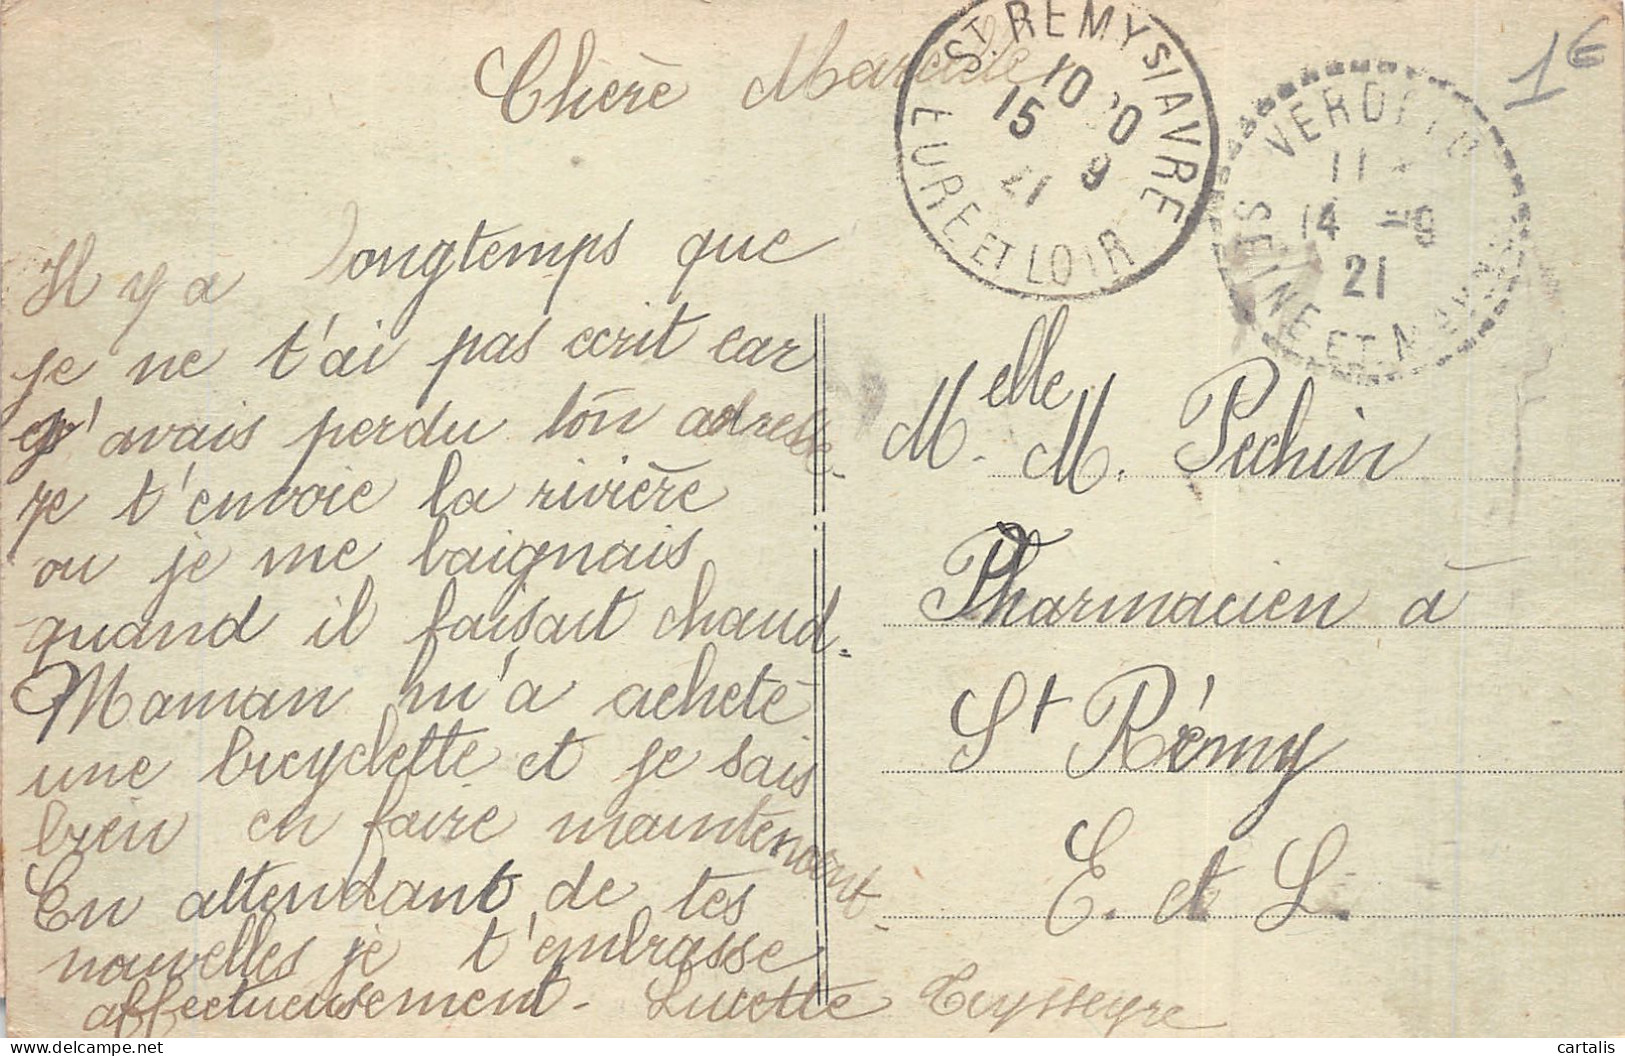 Chère Marcelle
Il y a longtemps que
je ne t'ai pas ecrit car
j'avais perdu ton adresse.
je t'envoie la rivière
ou je me baignais
quand il faisait chaud.
Maman m'a acheté
une bicyclette et je sais
bien en faire maintenant.
En attendant de tes
nouvelles je t'embrasse
affectueusement. Lucette Teysseyre
ST. REMY S/AVRE
10
15 9
21
EURE ET LOIR
11
14 - 9
21
SEINE ET MARNE
1€
Melle. M. Pechin
Pharmacien à
St Rémy
E. et L.
cartalis